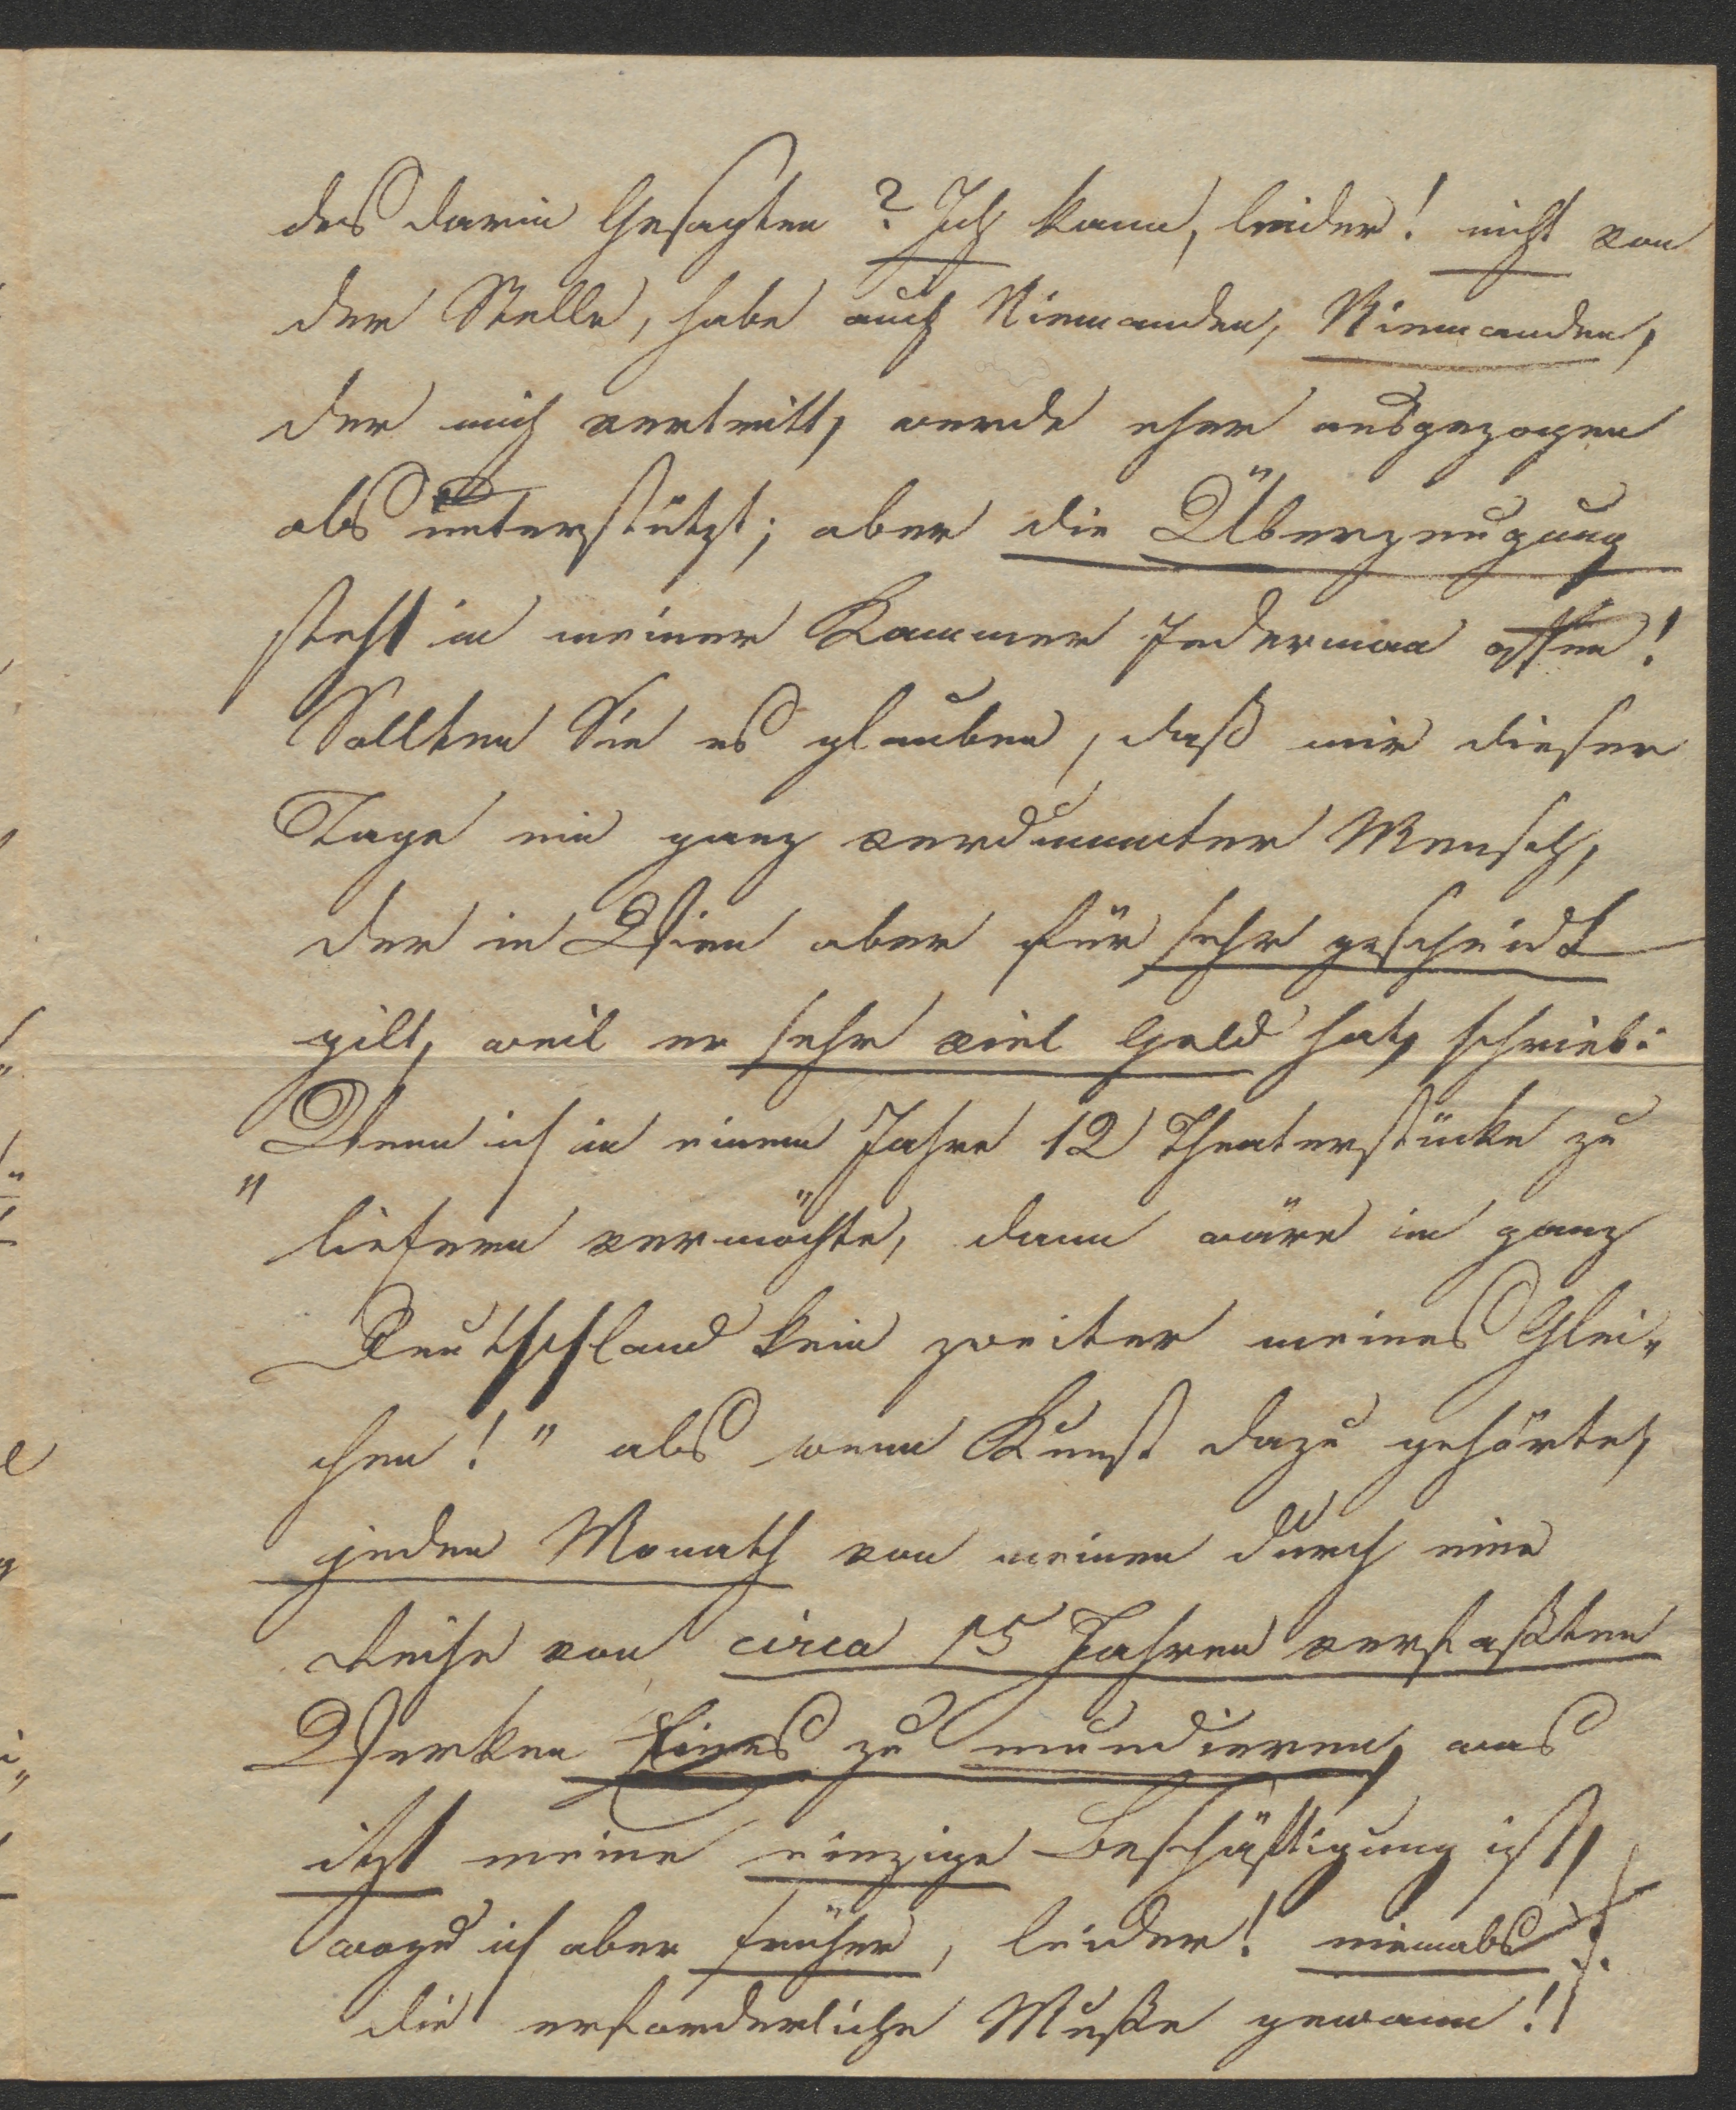 des darin Gesagten? Ich kann, leider! nicht von
der Stelle, habe auch Niemanden, Niemanden,
der mich vertritt, werde eher ausgezogen
als unterstützt; aber die Überzeugung
steht in meiner Kammer Jederman offen!
Sollten Sie es glauben, daß mir dieser
Tage ein ganz verdummter Mensch,
der in Wien aber für sehr gescheidt
gilt, weil er sehr viel Geld hat, schrieb:
"Wenn ich in einem Jahre 12 Theaterstücke zu
" liefern vermöchte, dann wäre in ganz
Deutschland kein zweiter meines Glei-
chen!" als wenn Kunst dazu gehörte,
jeden Monath von meinen durch eine
Reihe von circa 15 Jahren verfaßten
Werken Eines zu mundieren, was
itzt meine einzige Beschäftigung ist,
wozu ich aber früher, leider! niemals
die erforderliche Muße gewann!!